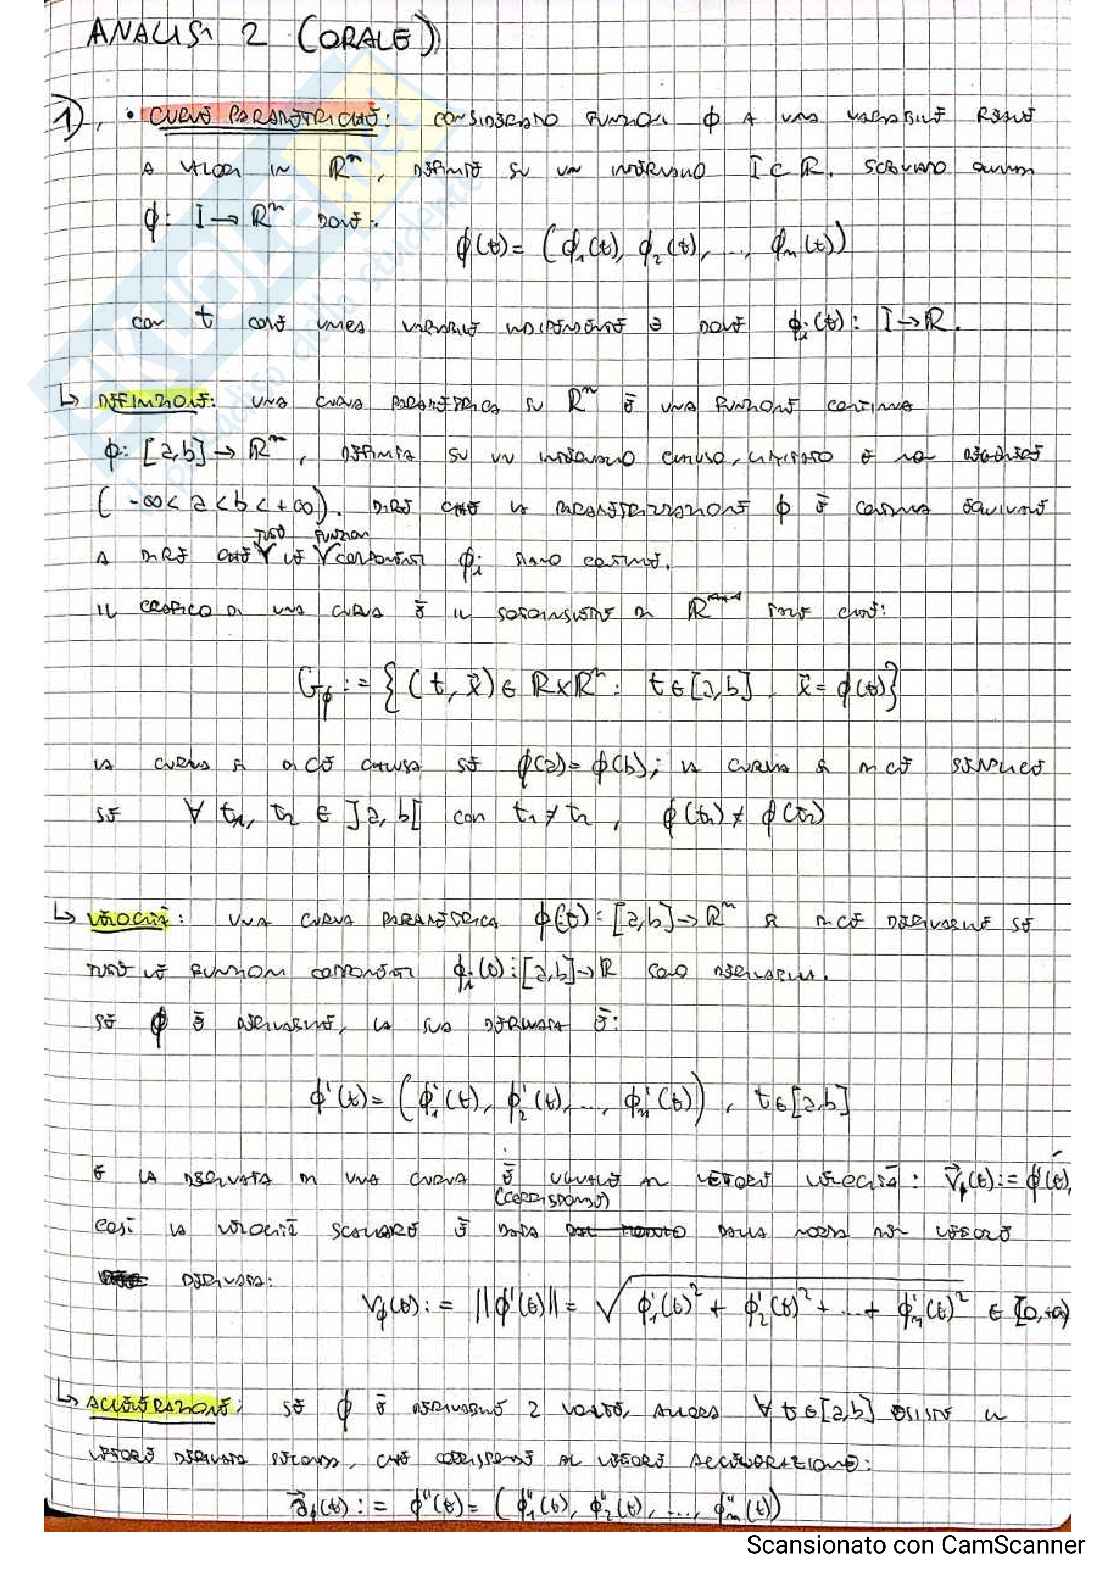 ANALISI 2 (ORALE)
1). • CURVE PARAMETRICHE: CONSIDERIAMO FUNZIONI ϕ A UNA VARIABILE REALE
A VALORI IN ℝⁿ, DEFINITE SU UN INTERVALLO I⊂ℝ. SCRIVIAMO QUINDI
ϕ: I→ℝⁿ DOVE:
ϕ(t)= (ϕ₁(t), ϕ₂(t), ..., ϕₙ(t))
CON t COME UNICA VARIABILE INDIPENDENTE E DOVE ϕᵢ(t): I→ℝ.
↳ DEFINIZIONE: UNA CURVA PARAMETRICA SU ℝⁿ È UNA FUNZIONE CONTINUA
ϕ: [a,b]→ℝⁿ, DEFINITA SU UN INTERVALLO CHIUSO, LIMITATO E NON DEGENERE
(-∞<a<b<+∞). DIRE CHE LA PARAMETRIZZAZIONE ϕ È CONTINUA EQUIVALE
TUTTE FUNZIONI
A DIRE CHE LE COMPONENTI ϕᵢ SIANO CONTINUE.
IL GRAFICO DI UNA CURVA È IL SOTTOINSIEME DI ℝ TALE CHE:
Gϕ := {(t, x⃗)∈ ℝxℝⁿ: t∈[a,b], x⃗= ϕ(t)}
LA CURVA SI DICE CHIUSA SE ϕ(a)= ϕ(b); LA CURVA SI DICE SEMPLICE
SE ∀ t₁, t₂ ∈ ]a,b[ CON t₁≠t₂, ϕ(t₁)≠ϕ(t₂)
↳ VELOCITÀ: UNA CURVA PARAMETRICA ϕ(t): [a,b]→ℝⁿ SI DICE DERIVABILE SE
TUTTE LE FUNZIONI COMPONENTI ϕᵢ(t): [a,b]→ℝ SONO DERIVABILI.
SE ϕ È DERIVABILE, LA SUA DERIVATA È:
ϕ'(t)= (ϕ₁'(t), ϕ₂'(t), ..., ϕₙ'(t)), t∈[a,b]
E LA DERIVATA DI UNA CURVA È UGUALE AL VETTORE VELOCITÀ: v⃗ϕ(t):= ϕ'(t),
(CORRISPONDE)
COSÌ LA VELOCITÀ SCALARE È DATA DALLA NORMA DEL VETTORE
DERIVATA:
vϕ(t):= ||ϕ'(t)||= √(ϕ₁'(t)² + ϕ₂'(t)² + ... + ϕₙ'(t)²) ∈ [0,+∞)
↳ ACCELERAZIONE: SE ϕ È DERIVABILE 2 VOLTE, ALLORA ∀ t∈[a,b] ESISTE IL
VETTORE DERIVATA SECONDA, CHE CORRISPONDE AL VETTORE ACCELERAZIONE:
a⃗ϕ(t):= ϕ''(t)= (ϕ₁''(t), ϕ₂''(t), ..., ϕₙ''(t))
Scansionato con CamScanner